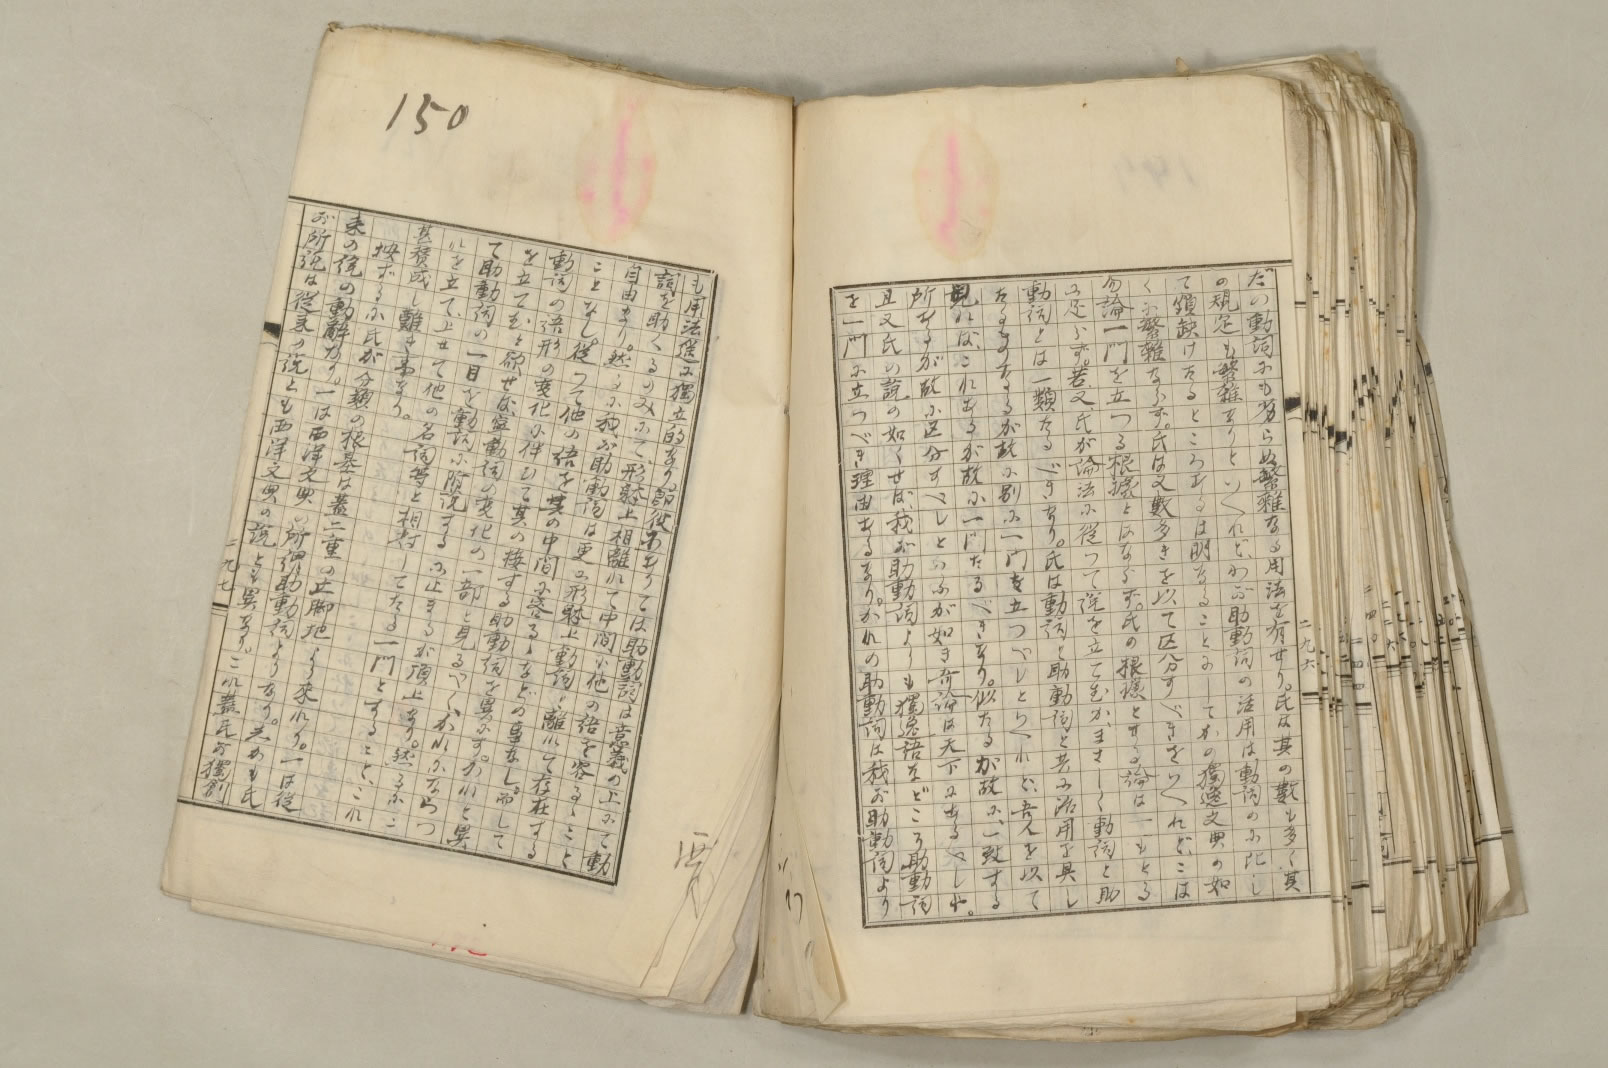 だの動詞にも劣らぬ繁雑なる用法を有せり。氏は其の數も多く其
の規定も繁雑なりといへれど、わが助動詞の活用は動詞のに比し
て鎖缺けたるところあるは明なることにしてかの獨逸文典の如
く繁雜ならず。氏は又數多きを以て区分すべきをいへれど、こは
勿論一門を立つる根據とはならず。氏の根據とせる論は一もとる
に足らず。若又、氏が論法に從つて説を立てむか、まさしく動詞と助
動詞とは一類たるべきなり。氏は動詞と助動詞と共に活用を具し
たるものなるが故に別に一門を立つべしといへれど、吾人を以て
見れば、これあるが故に一門たるべきなり。似たるが故に、一致する
所あるが故に区分すべしといふが如き奇論は天下にあるべしや。
且又氏の説の如くせば、我が助動詞よりも獨逸語などこそ助動詞
を一門に立つべき理由あるなり。かれの助動詞は我が助動詞より
二九六
150
も用法遙に獨立的なり。
詞を助くるのみにて、形體上相離れて中間に他の語を容るゝこと
自由なり。然るに我が助動詞は更に形體上動詞と離れて存在する
ことなし。從つて他の語を其の中間に容るゝなどの事なし。而して
動詞の語形の変化に伴ひて其の接する助動詞を異にす。かれと異
を立てむと欲せば、
て助動詞の一目を動詞に附説するに止まるが頂上なり。然るにこ
れを立てゝ上せて他の名詞等と相対したる一門とすること、これ
其賛成し難き事なり。
按ずるに氏が分類の根基は蓋二重の立脚地より来れり。一は從
来の説の動辭なり。一は西洋文典の所謂助動詞よりなり。しかも氏
が所説は從来の説とも西洋文典の説とも異なり。これ蓋氏が獨創
二九七